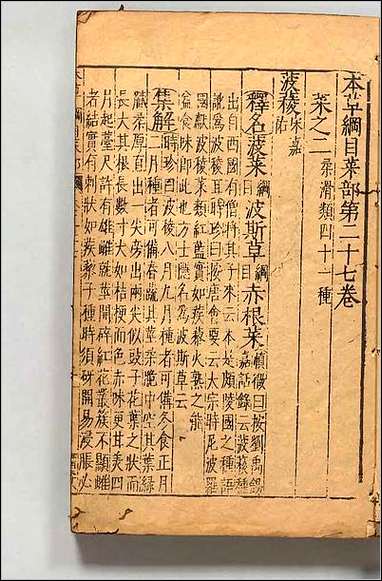 本草綱目菜部第二十七卷
菜之二 柔滑類四十一種
菠薐 宋嘉祐
釋名 菠菜 綱目 波斯草 綱目 赤根菜 慎微曰按劉禹錫嘉話錄云菠薐種
出自西國有僧將其子來云本是頗陵國之種語
訛為波稜耳時珍曰按唐會要云太宗時尼波羅
國獻波稜菜類紅藍實如蒺藜火熟之能
益食味即此也方士隱名為波斯草云
集解 時珍曰波稜八月九月種者可備冬食正月
二月種者可備春蔬其莖柔脆中空其葉綠
膩柔厚直出一尖旁出兩尖似鼓子花葉之狀而
長大其根長數寸大如桔梗而色赤味更甘美四
月起薹尺許有雄雌就莖開碎紅花叢簇不顯雌
者結實有刺狀如蒺藜子種時須砑開易浸脹必